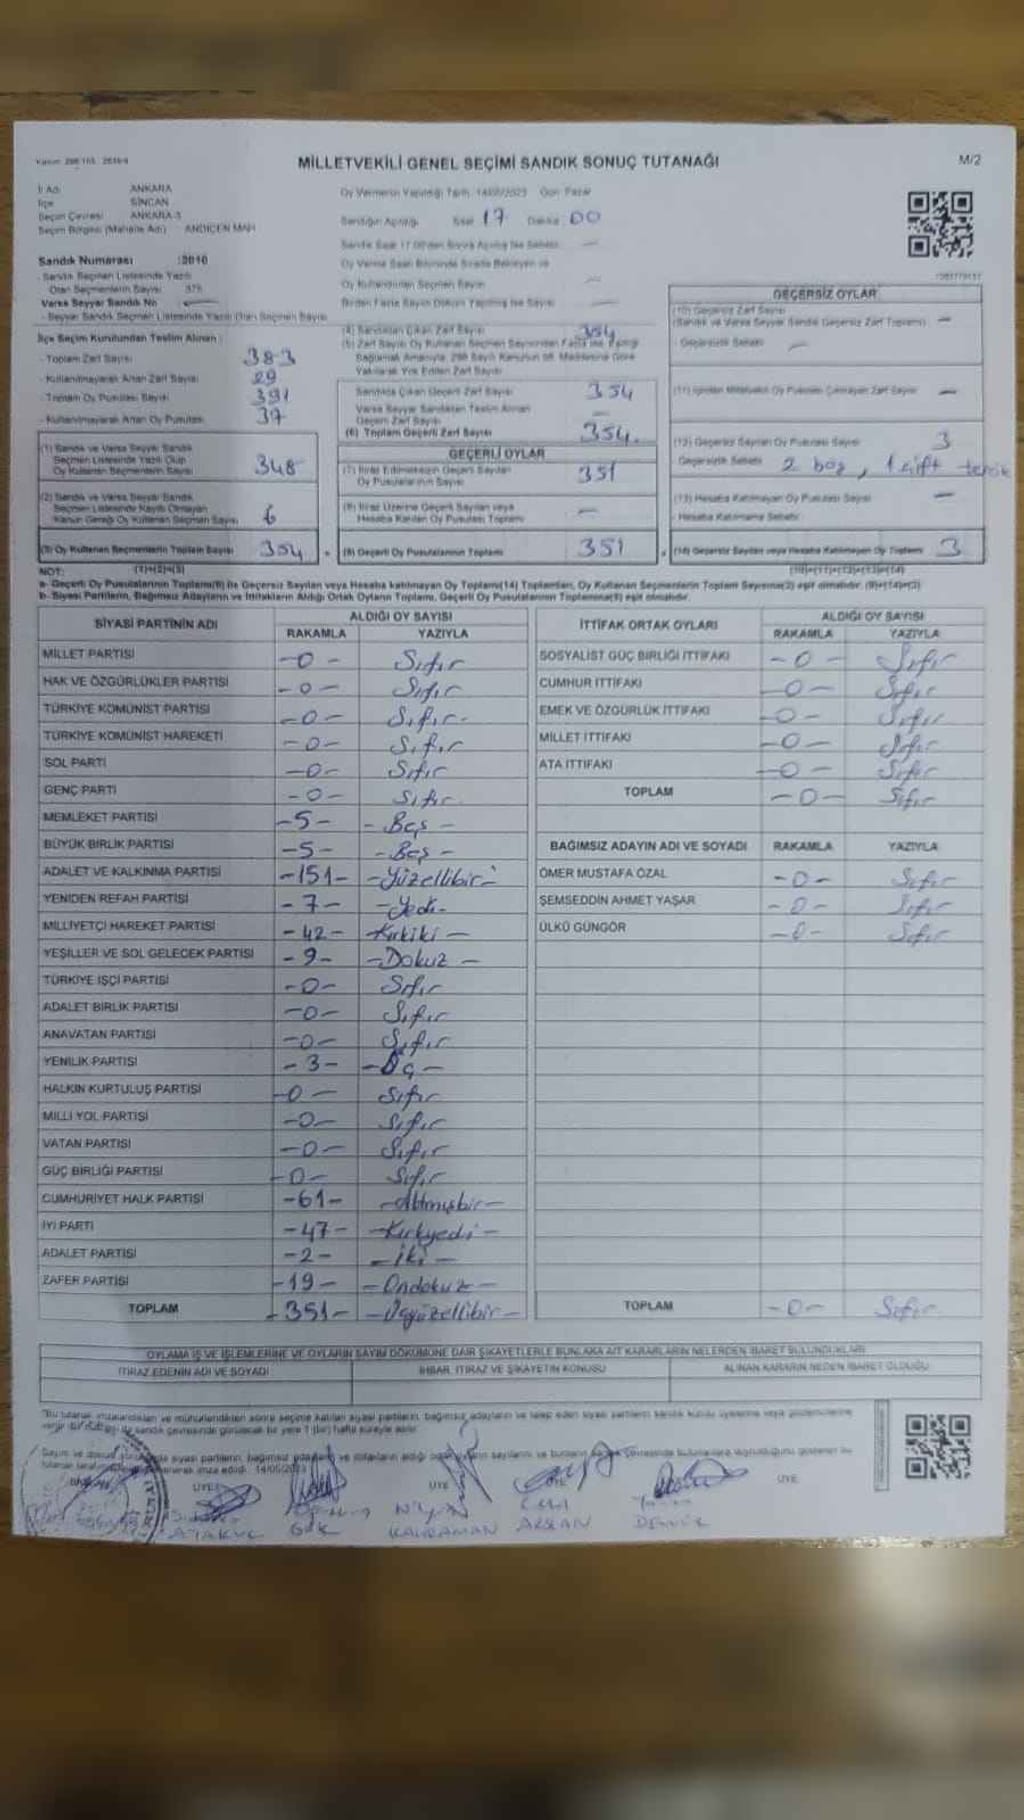 MİLLETVEKİLİ GENEL SEÇİMİ SANDIK SONUÇ TUTANAĞI
M/2
İl Adı ANKARA
İlçe SİNCAN
Seçim Çevresi ANKARA-3
Seçim Bölgesi (Mahalle Adı) ANDİÇEN MAH
Oy Vermenin Yapıldığı Tarih: 14/05/2023 Gün: Pazar
Sandığın Açıldığı Saat 17 Dakika 00
Sandık Numarası
- Sandık Seçmen Listesinde Yazılı
Olan Seçmenlerin Sayısı
Varsa Seyyar Sandık No
- Seyyar Sandık Seçmen Listesinde Yazılı Olan Seçmen Sayısı
İlçe Seçim Kurulundan Teslim Alınan :
- Toplam Zarf Sayısı 383
- Kullanılmayarak Artan Zarf Sayısı 29
- Toplam Oy Pusulası Sayısı 391
- Kullanılmayarak Artan Oy Pusulası 37
(1) Sandık ve Varsa Seyyar Sandık
Seçmen Listesinde Yazılı Olup
Oy Kullanan Seçmenlerin Sayısı 348
(2) Sandık ve Varsa Seyyar Sandık
Seçmen Listesinde Kayıtlı Olmayan
Kanun Gereği Oy Kullanan Seçmen Sayısı 6
(3) Oy Kullanan Seçmenlerin Toplam Sayısı 354
(4) Sandıktan Çıkan Zarf Sayısı 354
Sandıkta Çıkan Geçerli Zarf Sayısı 354
Varsa Seyyar Sandıktan Teslim Alınan
Geçerli Zarf Sayısı
(6) Toplam Geçerli Zarf Sayısı 354.
GEÇERLİ OYLAR
(7) İtiraz Edilmeksizin Geçerli Sayılan
Oy Pusulalarının Sayısı 351
(8) İtiraz Üzerine Geçerli Sayılan veya
Hesaba Katılan Oy Pusulası Toplamı —
(9) Geçerli Oy Pusulalarının Toplamı 351
GEÇERSİZ OYLAR
(10) Geçersiz Zarf Sayısı
(Sandık ve Varsa Seyyar Sandık Geçersiz Zarf Toplamı) —
- Geçersizlik Sebebi —
(12) Geçersiz Sayılan Oy Pusulası Sayısı 3
Geçersizlik Sebebi 2 boş, 1 çift tercih
(13) Hesaba Katılmayan Oy Pusulası Sayısı —
- Hesaba Katılmama Sebebi
(14) Geçersiz Sayılan veya Hesaba Katılmayan Oy Toplamı 3
NOT: (1)+(2)=(3) (10)+(11)+(12)+(13)=(14)
a- Geçerli Oy Pusulalarının Toplamı(9) ile Geçersiz Sayılan veya Hesaba katılmayan Oy Toplamı(14) Toplamları, Oy Kullanan Seçmenlerin Toplam Sayısına(3) eşit olmalıdır. (9)+(14)=(3)
b- Siyasi Partilerin, Bağımsız Adayların ve İttifakların Aldığı Ortak Oyların Toplamı, Geçerli Oy Pusulalarının Toplamına(9) eşit olmalıdır.
SİYASİ PARTİNİN ADI ALDIĞI OY SAYISI
RAKAMLA YAZIYLA
MİLLET PARTİSİ -0- Sıfır
HAK VE ÖZGÜRLÜKLER PARTİSİ -0- Sıfır
TÜRKİYE KOMÜNİST PARTİSİ -0- Sıfır
TÜRKİYE KOMÜNİST HAREKETİ -0- Sıfır
SOL PARTİ -0- Sıfır
GENÇ PARTİ -0- Sıfır
MEMLEKET PARTİSİ -5- -Beş-
BÜYÜK BİRLİK PARTİSİ -5- -Beş-
ADALET VE KALKINMA PARTİSİ -151- -Yüzellibir-
YENİDEN REFAH PARTİSİ -7- -Yedi-
MİLLİYETÇİ HAREKET PARTİSİ -42- -Kırkiki-
YEŞİLLER VE SOL GELECEK PARTİSİ -9- -Dokuz-
TÜRKİYE İŞÇİ PARTİSİ -0- Sıfır
ADALET BİRLİK PARTİSİ -0- Sıfır
ANAVATAN PARTİSİ -0- Sıfır
YENİLİK PARTİSİ -3- -Üç-
HALKIN KURTULUŞ PARTİSİ -0- Sıfır
MİLLİ YOL PARTİSİ -0- Sıfır
VATAN PARTİSİ -0- Sıfır
GÜÇ BİRLİĞİ PARTİSİ -0- Sıfır
CUMHURİYET HALK PARTİSİ -61- -Altmışbir-
İYİ PARTİ -47- -Kırkyedi-
ADALET PARTİSİ -2- -İki-
ZAFER PARTİSİ -19- -Ondokuz-
TOPLAM -351- -Üçyüzellibir-
İTTİFAK ORTAK OYLARI ALDIĞI OY SAYISI
RAKAMLA YAZIYLA
SOSYALİST GÜÇ BİRLİĞİ İTTİFAKI -0- Sıfır
CUMHUR İTTİFAKI -0- Sıfır
EMEK VE ÖZGÜRLÜK İTTİFAKI -0- Sıfır
MİLLET İTTİFAKI -0- Sıfır
ATA İTTİFAKI -0- Sıfır
TOPLAM -0- Sıfır
BAĞIMSIZ ADAYIN ADI VE SOYADI RAKAMLA YAZIYLA
ÖMER MUSTAFA ÖZAL -0- Sıfır
ŞEMSEDDİN AHMET YAŞAR -0- Sıfır
ÜLKÜ GÜNGÖR -0- Sıfır
TOPLAM -0- Sıfır
OYLAMA İŞ VE İŞLEMLERİNE VE OYLARIN SAYIM DÖKÜMÜNE DAİR ŞİKAYETLERLE BUNLARA AİT KARARLARIN NELERDEN İBARET BULUNDUKLARI
İTİRAZ EDENİN ADI VE SOYADI İHBAR, İTİRAZ VE ŞİKAYETİN KONUSU ALINAN KARARIN NEDEN İBARET OLDUĞU
ÜYE ÜYE ÜYE ÜYE
GÖK KAHRAMAN ARSLAN